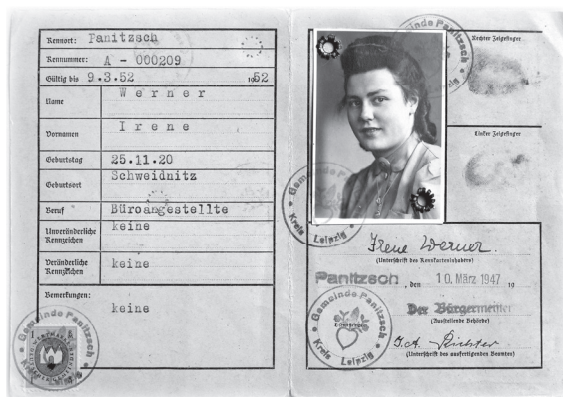 Kennort: Panitzsch
Kennummer: A - 000209
Gültig bis 9.3.52 1952
Name Werner
Vornamen Irene
Geburtstag 25.11.20
Geburtsort Schweidnitz
Beruf Büroangestellte
Unveränderliche Kennzeichen keine
Veränderliche Kennzeichen keine
Bemerkungen:
keine
Gemeinde Panitzsch
Kreis Leipzig
Gemeinde Panitzsch
Rechter Zeigefinger
Linker Zeigefinger
Gemeinde Panitzsch
Kreis Leipzig
Irene Werner.
(Unterschrift des Kennkarteninhabers)
Panitzsch, den 10. März 1947 19
Der Bürgermeister
(Ausstellende Behörde)
J.A. Richter
(Unterschrift des ausfertigenden Beamten)
Gemeinde Panitzsch
Kreis Leipzig